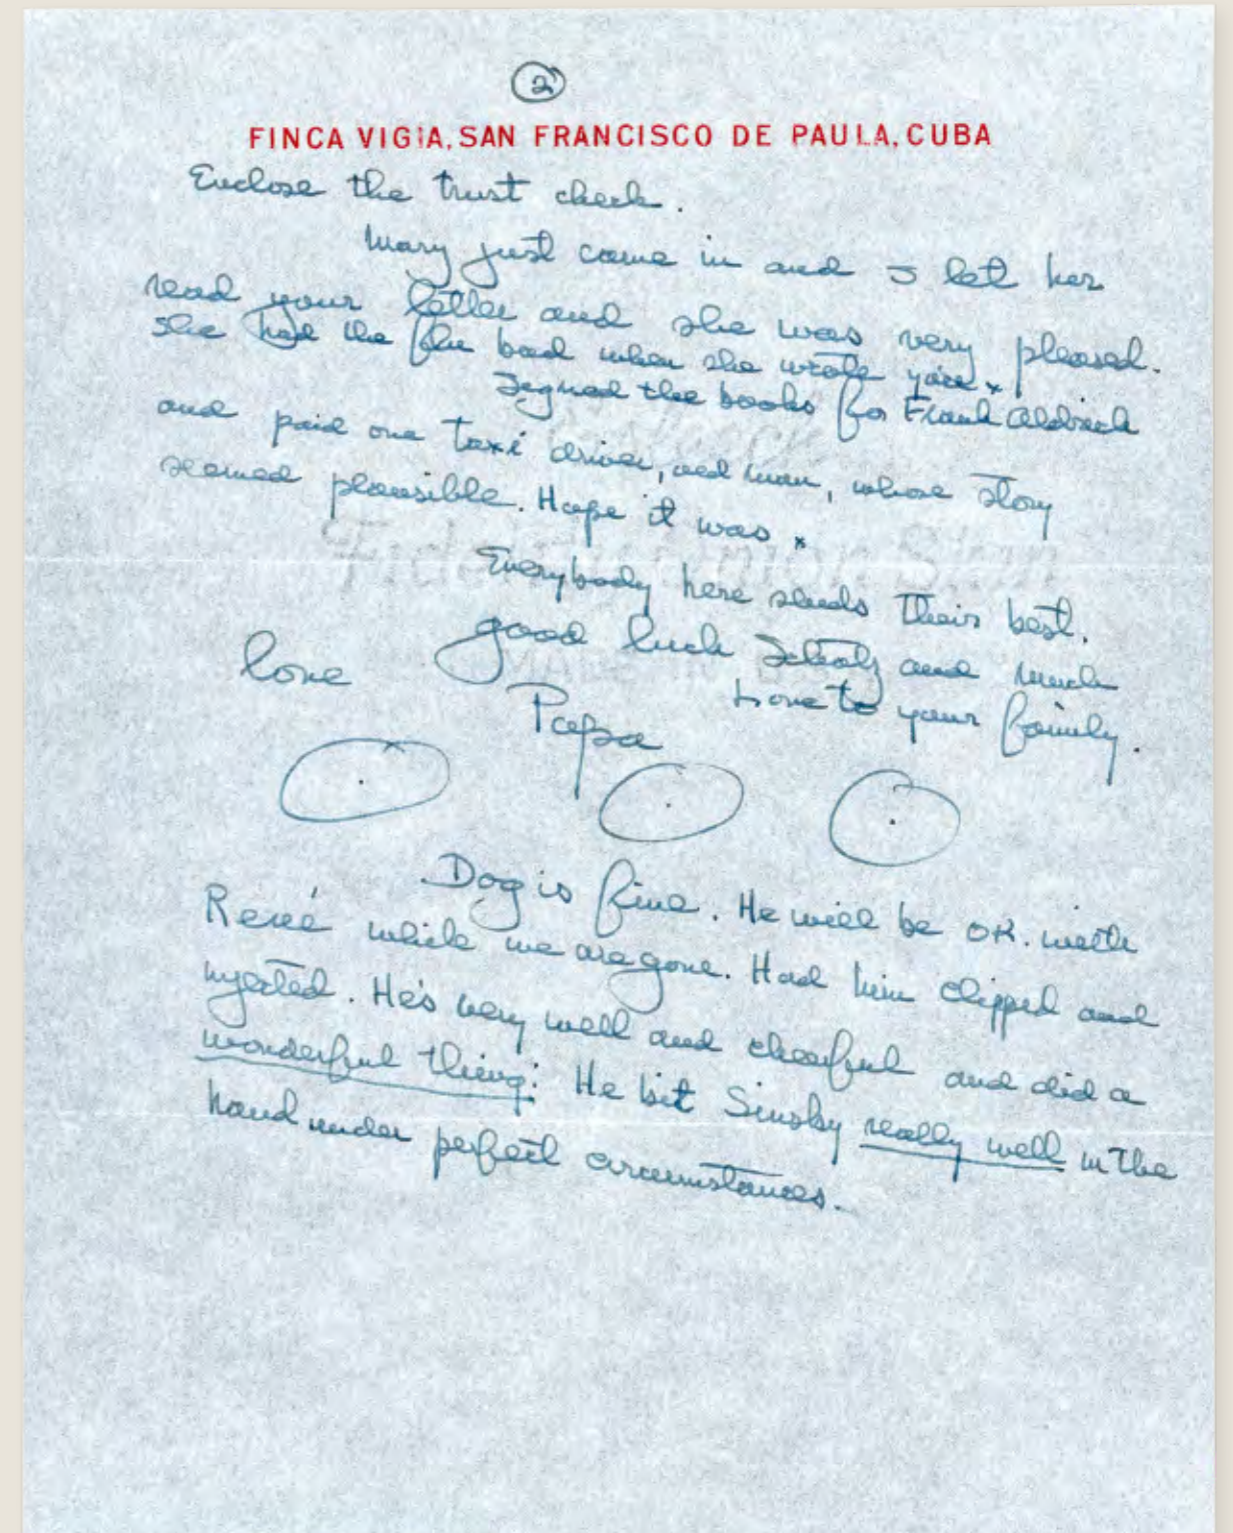 2
FINCA VIGIA, SAN FRANCISCO DE PAULA, CUBA
Enclose the trust check.
Mary just came in and I let her
read your letter and she was very pleased.
She had the flu bad when she wrote you x
Signed the books for Frank Aldrich
and paid one taxi driver, old man, whose story
seemed plausible. Hope it was x
Everybody here sends their best.
good luck Schatz and much
love to your family.
love
Papa
Dog is fine. He will be OK. with
René while we are gone. Had him clipped and
injected. He's very well and cheerful and did a
wonderful thing: He bit Sinsky really well in the
hand under perfect circumstances.